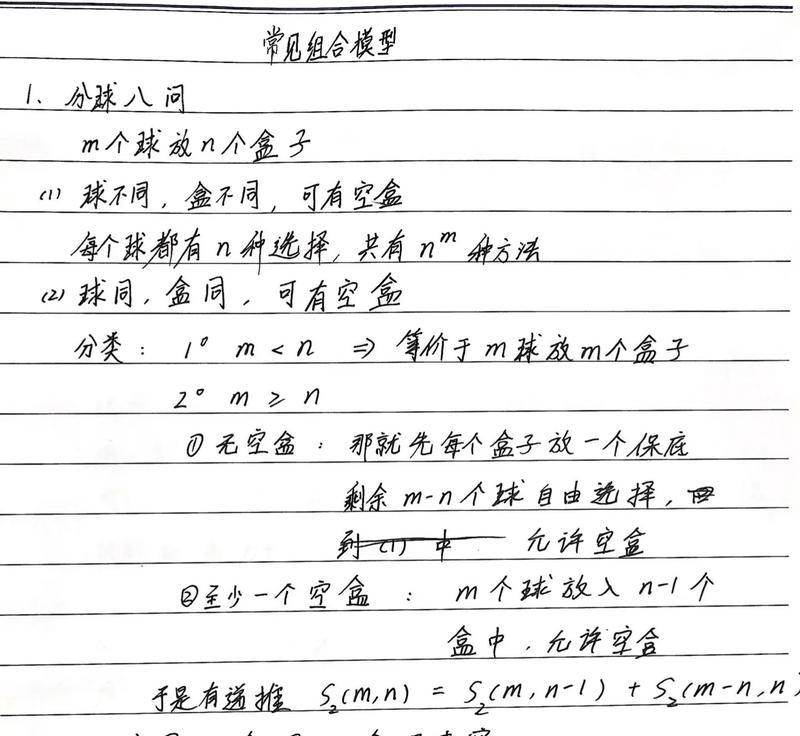 常见组合模型
1. 分球八问
m个球放n个盒子
(1) 球不同, 盒不同, 可有空盒
每个球都有 n 种选择, 共有 n^m 种方法
(2) 球同, 盒同, 可有空盒
分类: 1° m < n ⇒ 等价于 m 球放 m 个盒子
2° m ≥ n
① 无空盒: 那就先每个盒子放一个保底
剩余 m-n 个球自由选择,
到(1)中 允许空盒
② 至少一个空盒: m 个球放入 n-1 个
盒中, 允许空盒
于是有递推 S₂(m,n) = S₂(m,n-1) + S₂(m-n,n)